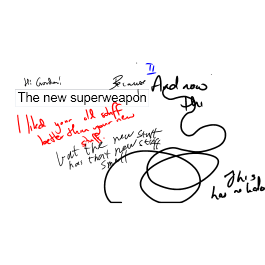 Hi Gordon!
Because
And now
The new superweapon
thi
I liked your old stuff
better than your new
stuff.
but the new stuff
has that new stuff
smell
This
has no